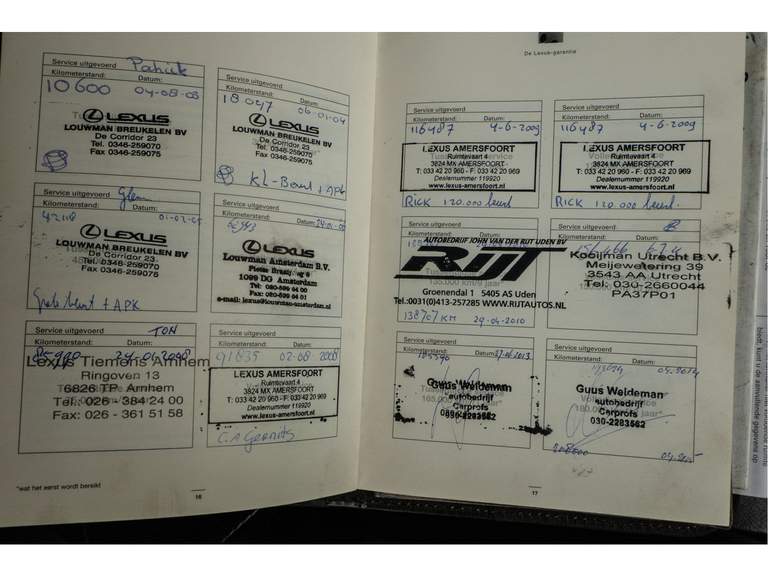 Service uitgevoerd Patrick
Kilometerstand: Datum:
10600 04-08-03
LEXUS
LOUWMAN BREUKELEN BV
De Corridor 23
Tel. 0346-259070
Fax 0346-259075
Service uitgevoerd
Kilometerstand: Datum:
18047 06-01-04
LEXUS
LOUWMAN BREUKELEN BV
De Corridor 23
Tel. 0346-259070
Fax 0346-259075
Service uitgevoerd Glenn
Kilometerstand: Datum:
LEXUS
LOUWMAN BREUKELEN BV
De Corridor 23
Tel. 0346-259070
Fax 0346-259075
Grote beurt + APK
Service uitgevoerd
Kilometerstand: Datum:
LEXUS
Louwman Amsterdam B.V.
1099 DG Amsterdam
Tel: 020-599 94 00
Fax: 020-599 94 01
e-mail: lexus@louwman-amsterdam.nl
Service uitgevoerd TON
Kilometerstand: Datum:
Lexus Tiemons Arnhem
Ringoven 13
6826 TP Arnhem
Tel: 026 - 384 24 00
Fax: 026 - 361 51 58
Service uitgevoerd
Kilometerstand: Datum:
91835 02-08-2008
LEXUS AMERSFOORT
Ruimtevaart 4
3824 MX AMERSFOORT
T: 033 42 20 960 - F: 033 42 20 969
Dealernummer 119920
www.lexus-amersfoort.nl
*wat het eerst wordt bereikt
16
De Lexus-garantie
Service uitgevoerd
Kilometerstand: Datum:
116487 4-6-2009
LEXUS AMERSFOORT
Ruimtevaart 4
3824 MX AMERSFOORT
T: 033 42 20 960 - F: 033 42 20 969
Dealernummer 119920
www.lexus-amersfoort.nl
RICK 120.000 beurt
Service uitgevoerd
Kilometerstand: Datum:
116487 4-6-2009
LEXUS AMERSFOORT
Ruimtevaart 4
3824 MX AMERSFOORT
T: 033 42 20 960 - F: 033 42 20 969
Dealernummer 119920
www.lexus-amersfoort.nl
RICK 120.000 beurt
Service uitgevoerd
Kilometerstand: Datum:
AUTOBEDRIJF JOHN VAN DER RIJT UDEN BV
RIJT
Groenendal 1 5405 AS Uden
Tel.:0031(0)413-257285 WWW.RIJTAUTOS.NL
138707 KM 29-04-2010
Service uitgevoerd
Kilometerstand: Datum:
Kooijman Utrecht B.V.
Meijewetering 39
3543 AA Utrecht
Tel. 030-2660044
PA37P01
Service uitgevoerd
Kilometerstand: Datum:
Guus Weideman
autobedrijf
Carprofs
Service uitgevoerd
Kilometerstand: Datum:
Guus Weideman
autobedrijf
Carprofs
030-2283562
17